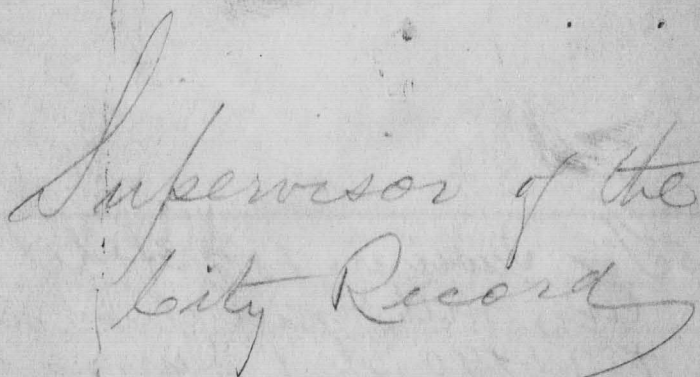 Supervisor of the
City Record